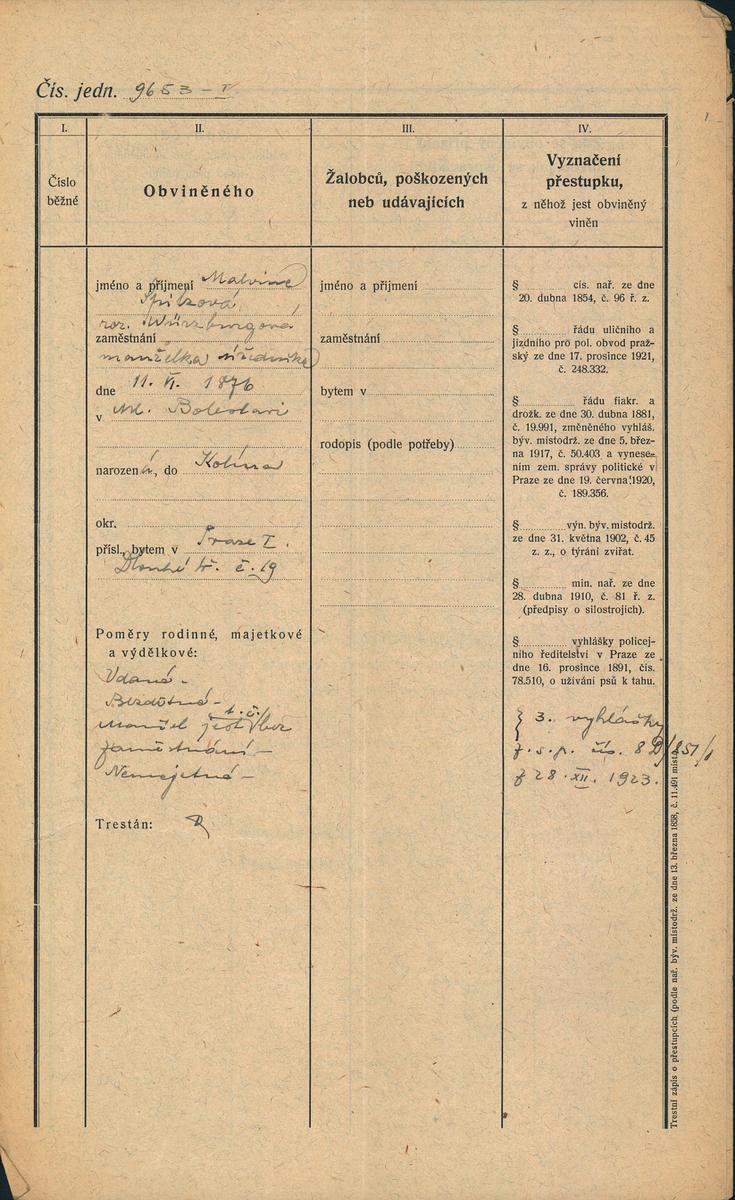 Čís. jedn. 9653 – V
I.
Číslo
běžné
II.
Obviněného
III.
Žalobců, poškozených
neb udávajících
IV.
Vyznačení
přestupku,
z něhož jest obviněný
viněn
jméno a příjmení Malvine
Spitzová,
roz. Würzburgová
zaměstnání
manželka úředníka
dne 11. VI. 1876
v Ml. Boleslavi
narozená, do Kolína
okr.
přísl., bytem v Praze I.
Dlouhé tř. č. 19
Poměry rodinné, majetkové
a výdělkové:
Vdaná –
Bezdětná –
t. č.
Manžel jest bez
zaměstnání –
Nemajetná –
Trestán:
jméno a příjmení
zaměstnání
bytem v
rodopis (podle potřeby)
§ cís. nař. ze dne
20. dubna 1854, č. 96 ř. z.
§ řádu uličního a
jízdního pro pol. obvod praž-
ský ze dne 17. prosince 1921,
č. 248.332.
§ řádu fiakr. a
drožk. ze dne 30. dubna 1881,
č. 19.991, změněného vyhláš.
býv. místodrž. ze dne 5. břez-
na 1917, č. 50.403 a vynese-
ním zem. správy politické v
Praze ze dne 19. června 1920,
č. 189.356.
§ výn. býv. místodrž.
ze dne 31. května 1902, č. 45
z. z., o týrání zvířat.
§ min. nař. ze dne
28. dubna 1910, č. 81 ř. z.
(předpisy o silostrojích).
§ vyhlášky policej-
ního ředitelství v Praze ze
dne 16. prosince 1891, čís.
78.510, o užívání psů k tahu.
§ 3. vyhlášky
z. s. p. čís. 8 D/851/1
z 28. XII. 1923.
Trestní zápis o přestupcích (podle nař. býv. místodrž. ze dne 13. března 1858, č. 11.491 míst.)